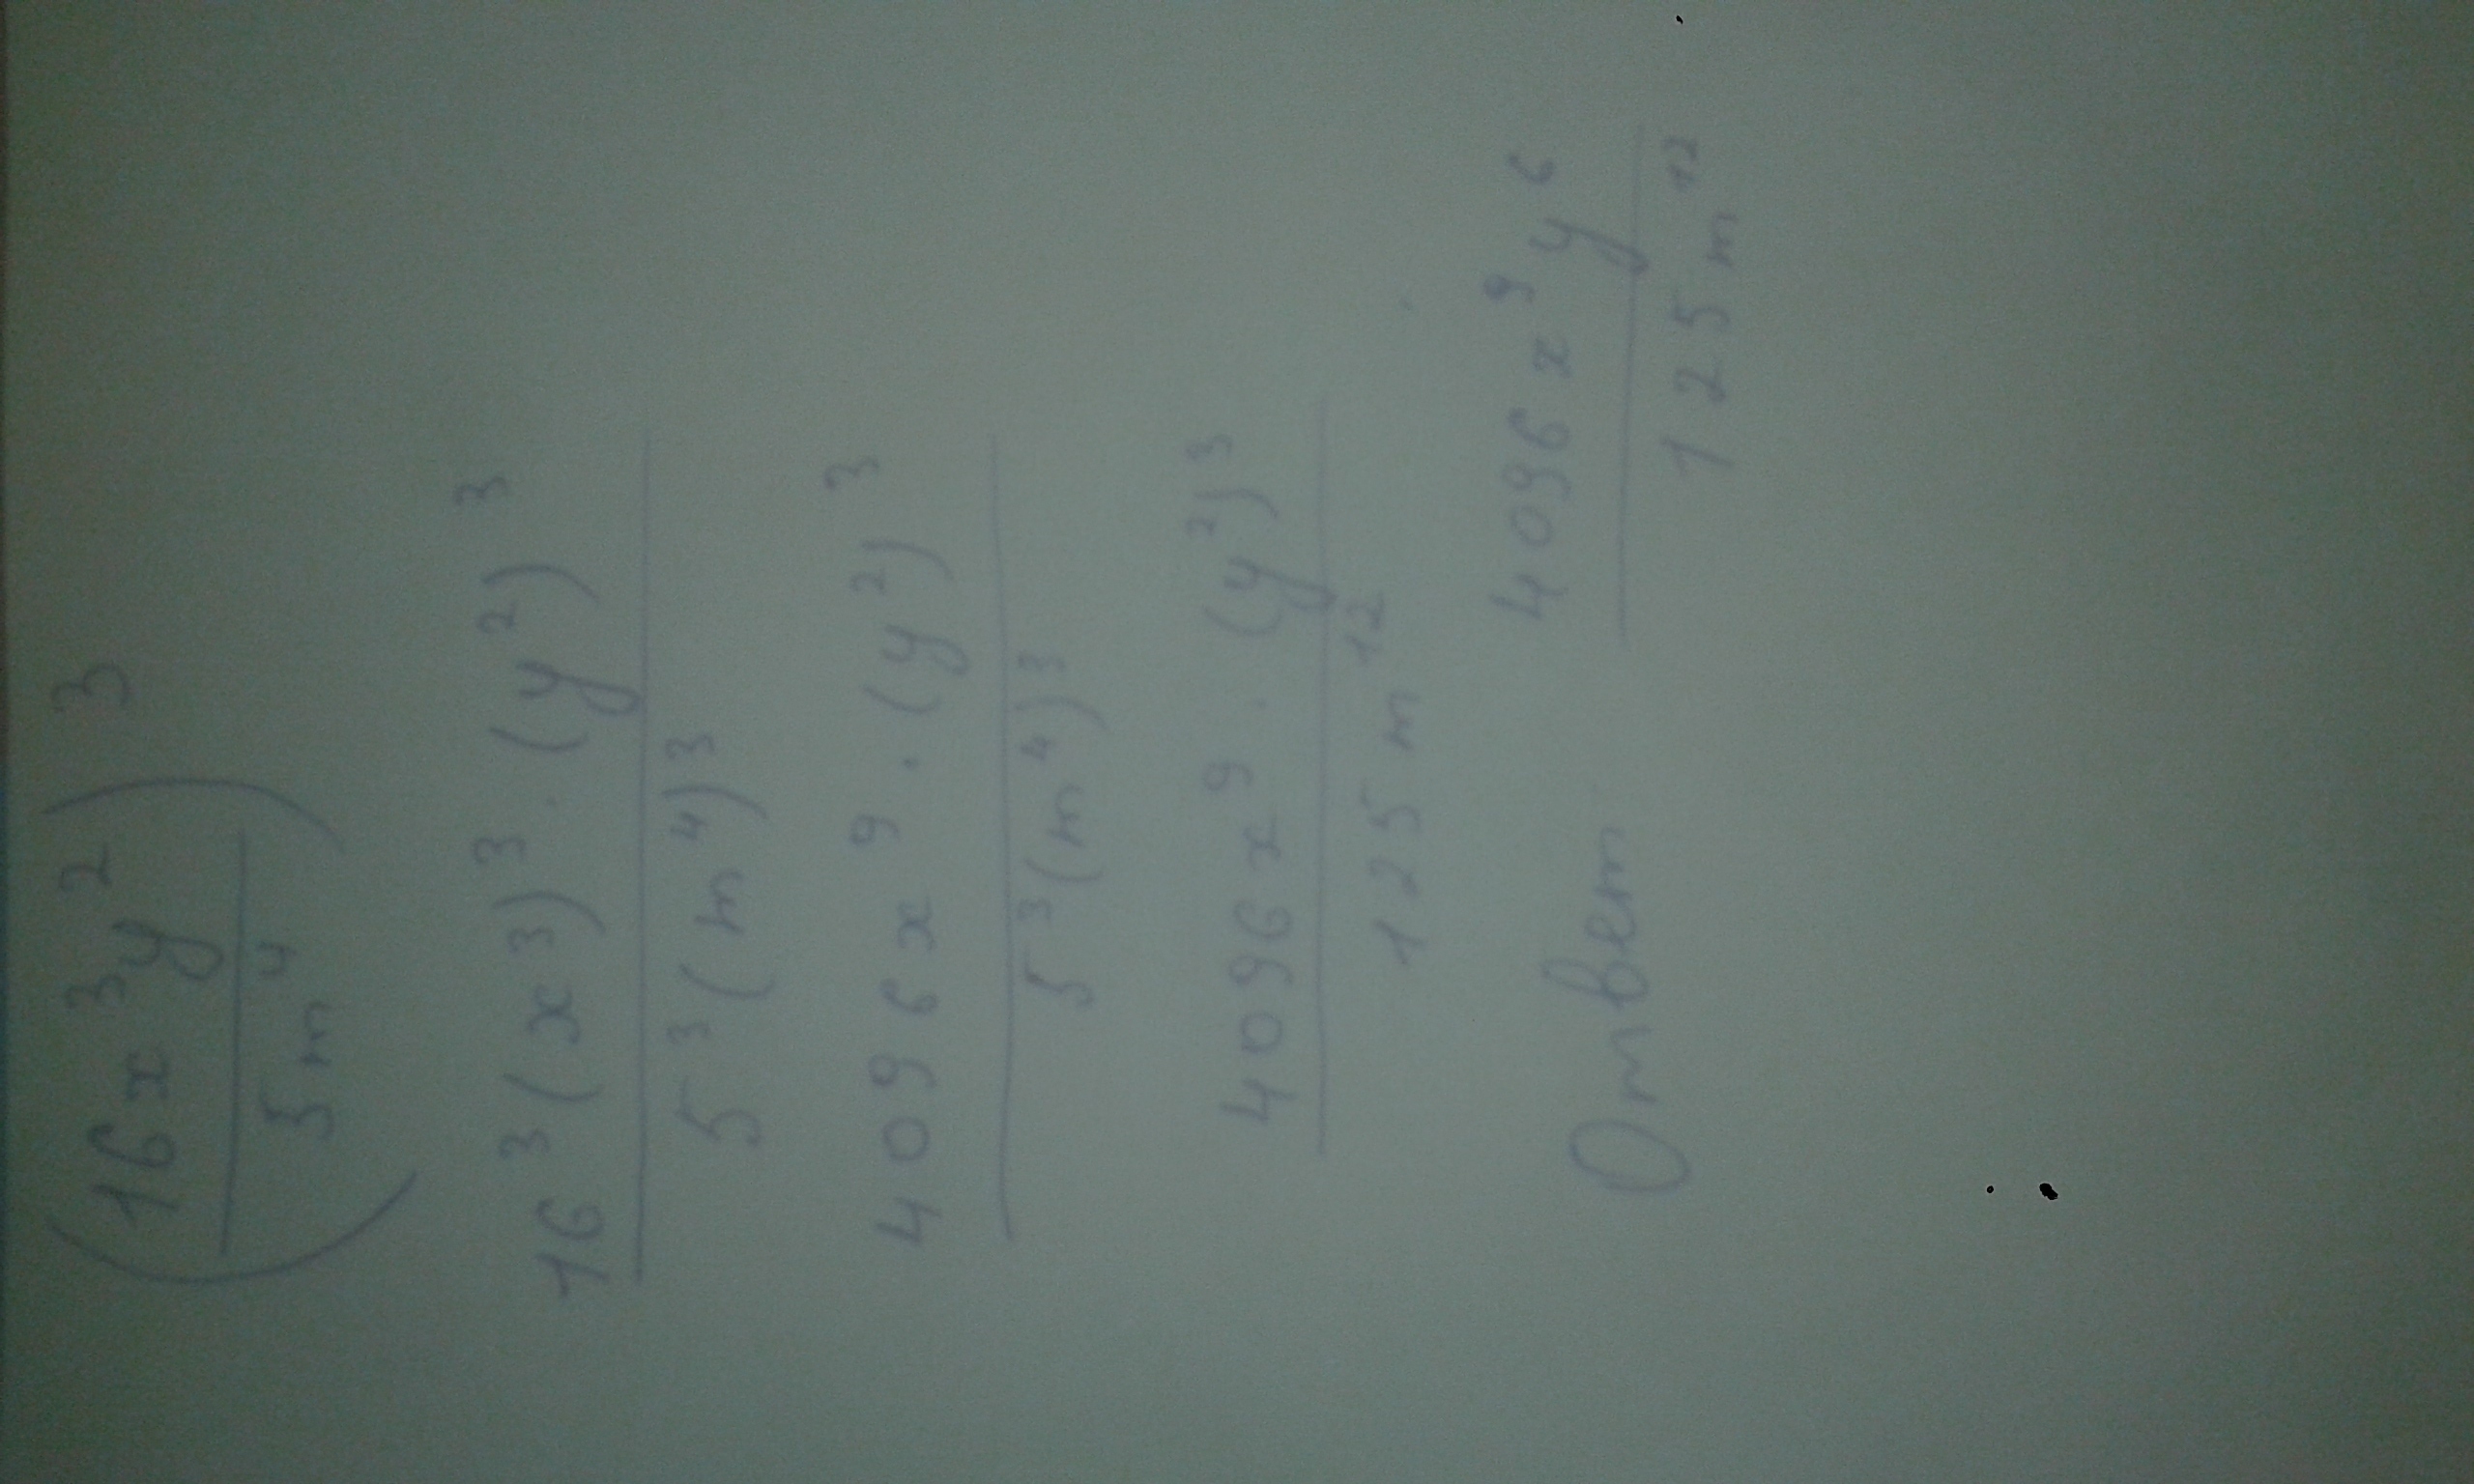 (16x³y² / 5m⁴)³
16³(x³)³ · (y²)³ / 5³(m⁴)³
4096x⁹ · (y²)³ / 5³(m⁴)³
4096x⁹ · (y²)³ / 125m¹²
Ответ 4096x⁹y⁶ / 125m¹²